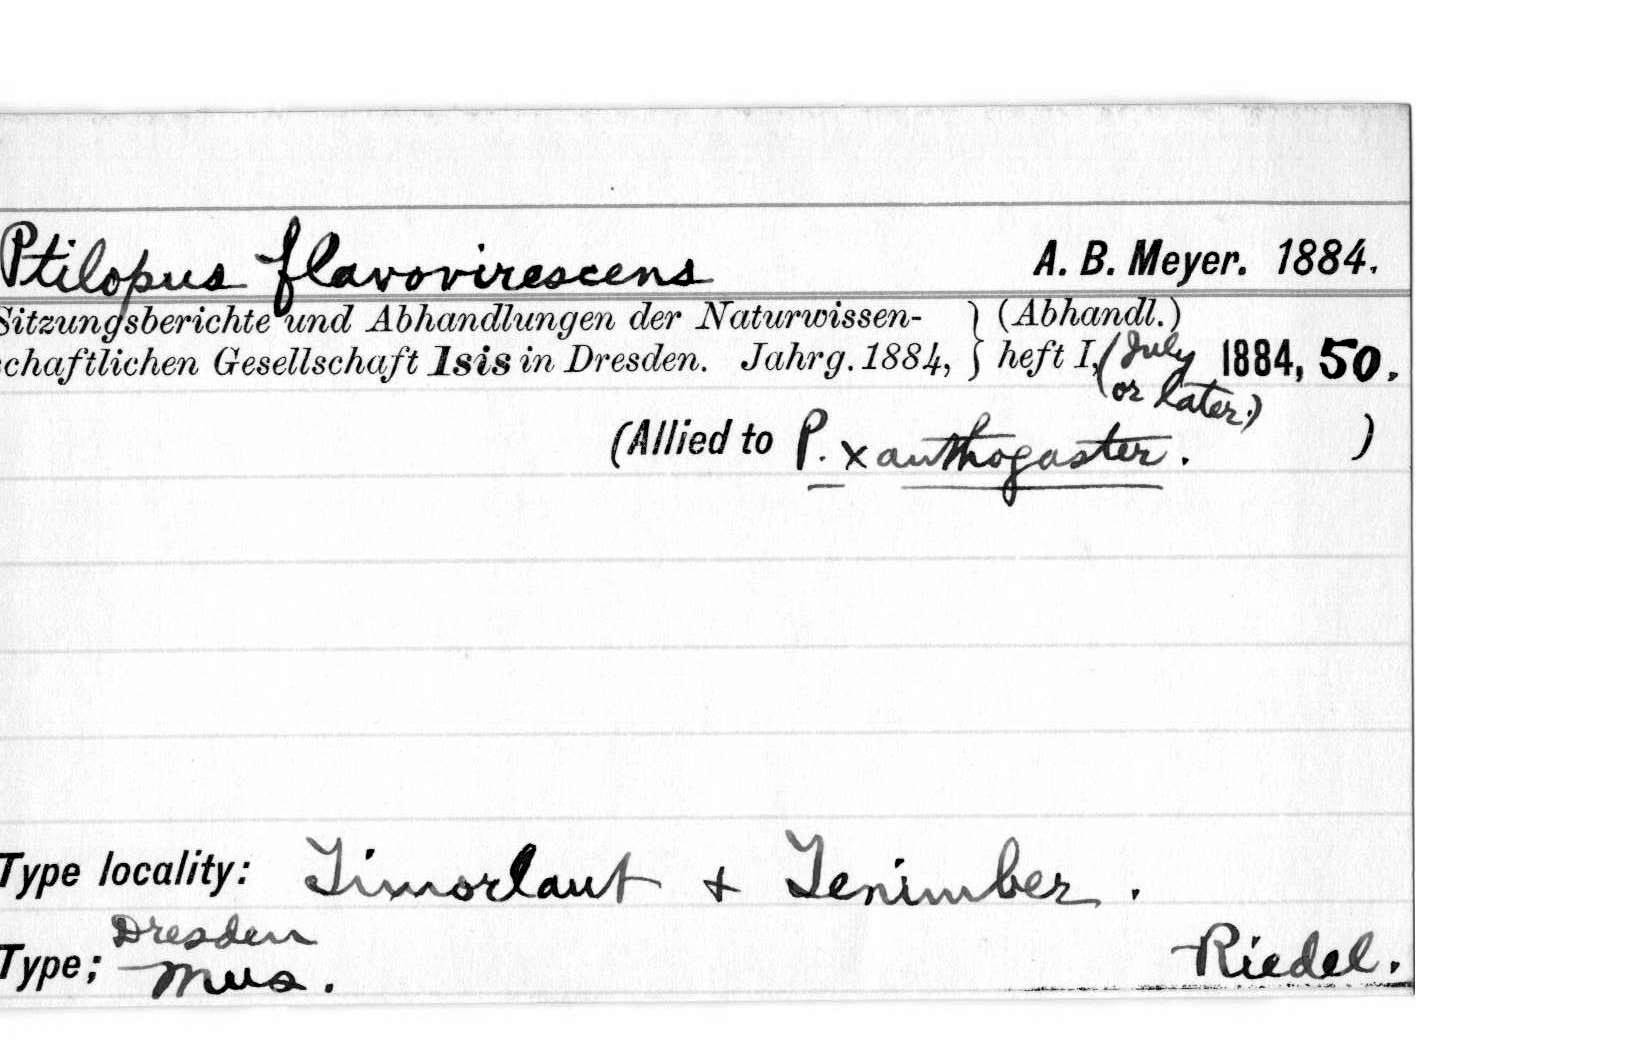 Ptilopus flavovirescens A. B. Meyer. 1884.
Sitzungsberichte und Abhandlungen der Naturwissen- } (Abhandl.)
schaftlichen Gesellschaft Isis in Dresden. Jahrg. 1884, } heft I, (July 1884, 50.
or later.)
(Allied to P. xanthogaster. )
Type locality: Timorlaut + Tenimber.
Dresden
Type; Mus. Riedel.